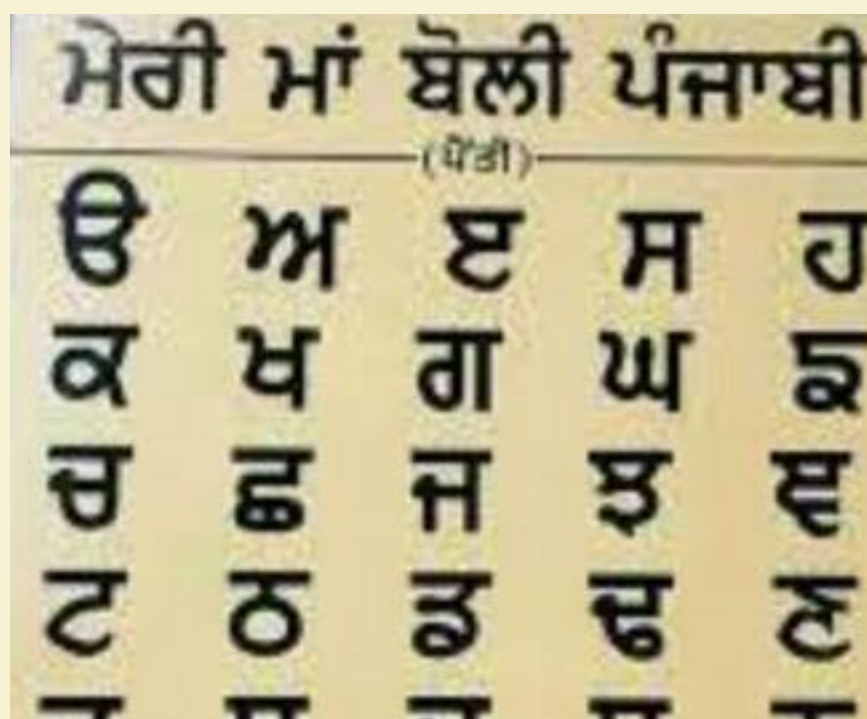 ਮੇਰੀ ਮਾਂ ਬੋਲੀ ਪੰਜਾਬੀ
(ਪੈਂਤੀ)
ੳ ਅ ੲ ਸ ਹ
ਕ ਖ ਗ ਘ ਙ
ਚ ਛ ਜ ਝ ਞ
ਟ ਠ ਡ ਢ ਣ